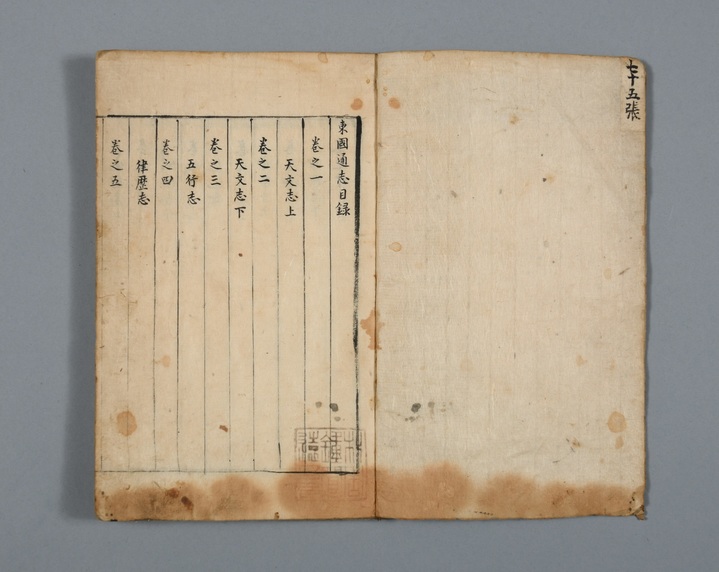 七十五張
東國通志目録
卷之一
天文志上
卷之二
天文志下
卷之三
五行志
卷之四
律歷志
卷之五